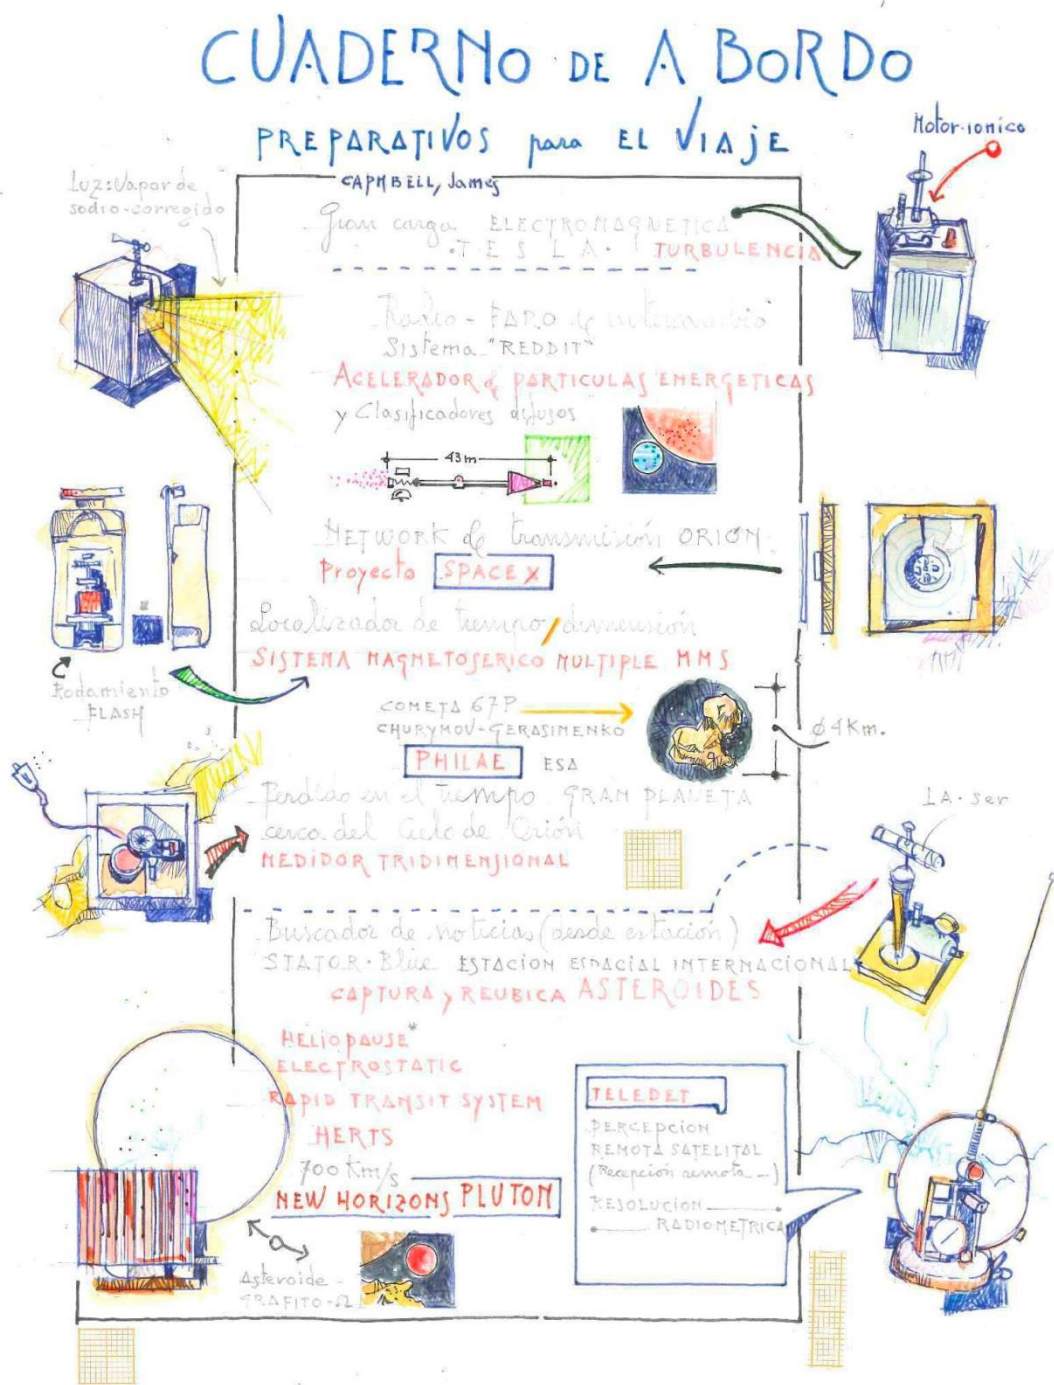 CUADERNO DE A BORDO
PREPARATIVOS para EL VIAJE
Motor-ionico
Luz: Vapor de
sodio-corregido
CAPMBELL, James
Gran carga ELECTROMAGNETICA
·TESLA· TURBULENCIA
Radio-FARO de intercambio
Sistema "REDDIT"
ACELERADOR de PARTICULAS ENERGETICAS
y Clasificadores difusos
43m
NETWORK de transmisión ORION
Proyecto SPACE X
Localizador de tiempo/dimensión
SISTEMA MAGNETOSERICO MULTIPLE MMS
Rodamiento
FLASH
COMETA 67P
CHURYMOV-GERASIMENKO
Ø4Km.
PHILAE ESA
Perdido en el tiempo GRAN PLANETA
cerca del Cielo de Orión
MEDIDOR TRIDIMENSIONAL
LA-ser
Buscador de noticias (desde estación)
STATOR·Blue ESTACION ESPACIAL INTERNACIONAL
CAPTURA y REUBICA ASTEROIDES
HELIOPAUSE*
ELECTROSTATIC
RAPID TRANSIT SYSTEM
HERTS
700 Km/s
NEW HORIZONS PLUTON
Asteroide-
GRAFITO-Ω
TELEDET
PERCEPCION
REMOTA SATELITAL
(Recepción remota -)
RESOLUCION
RADIOMETRICA